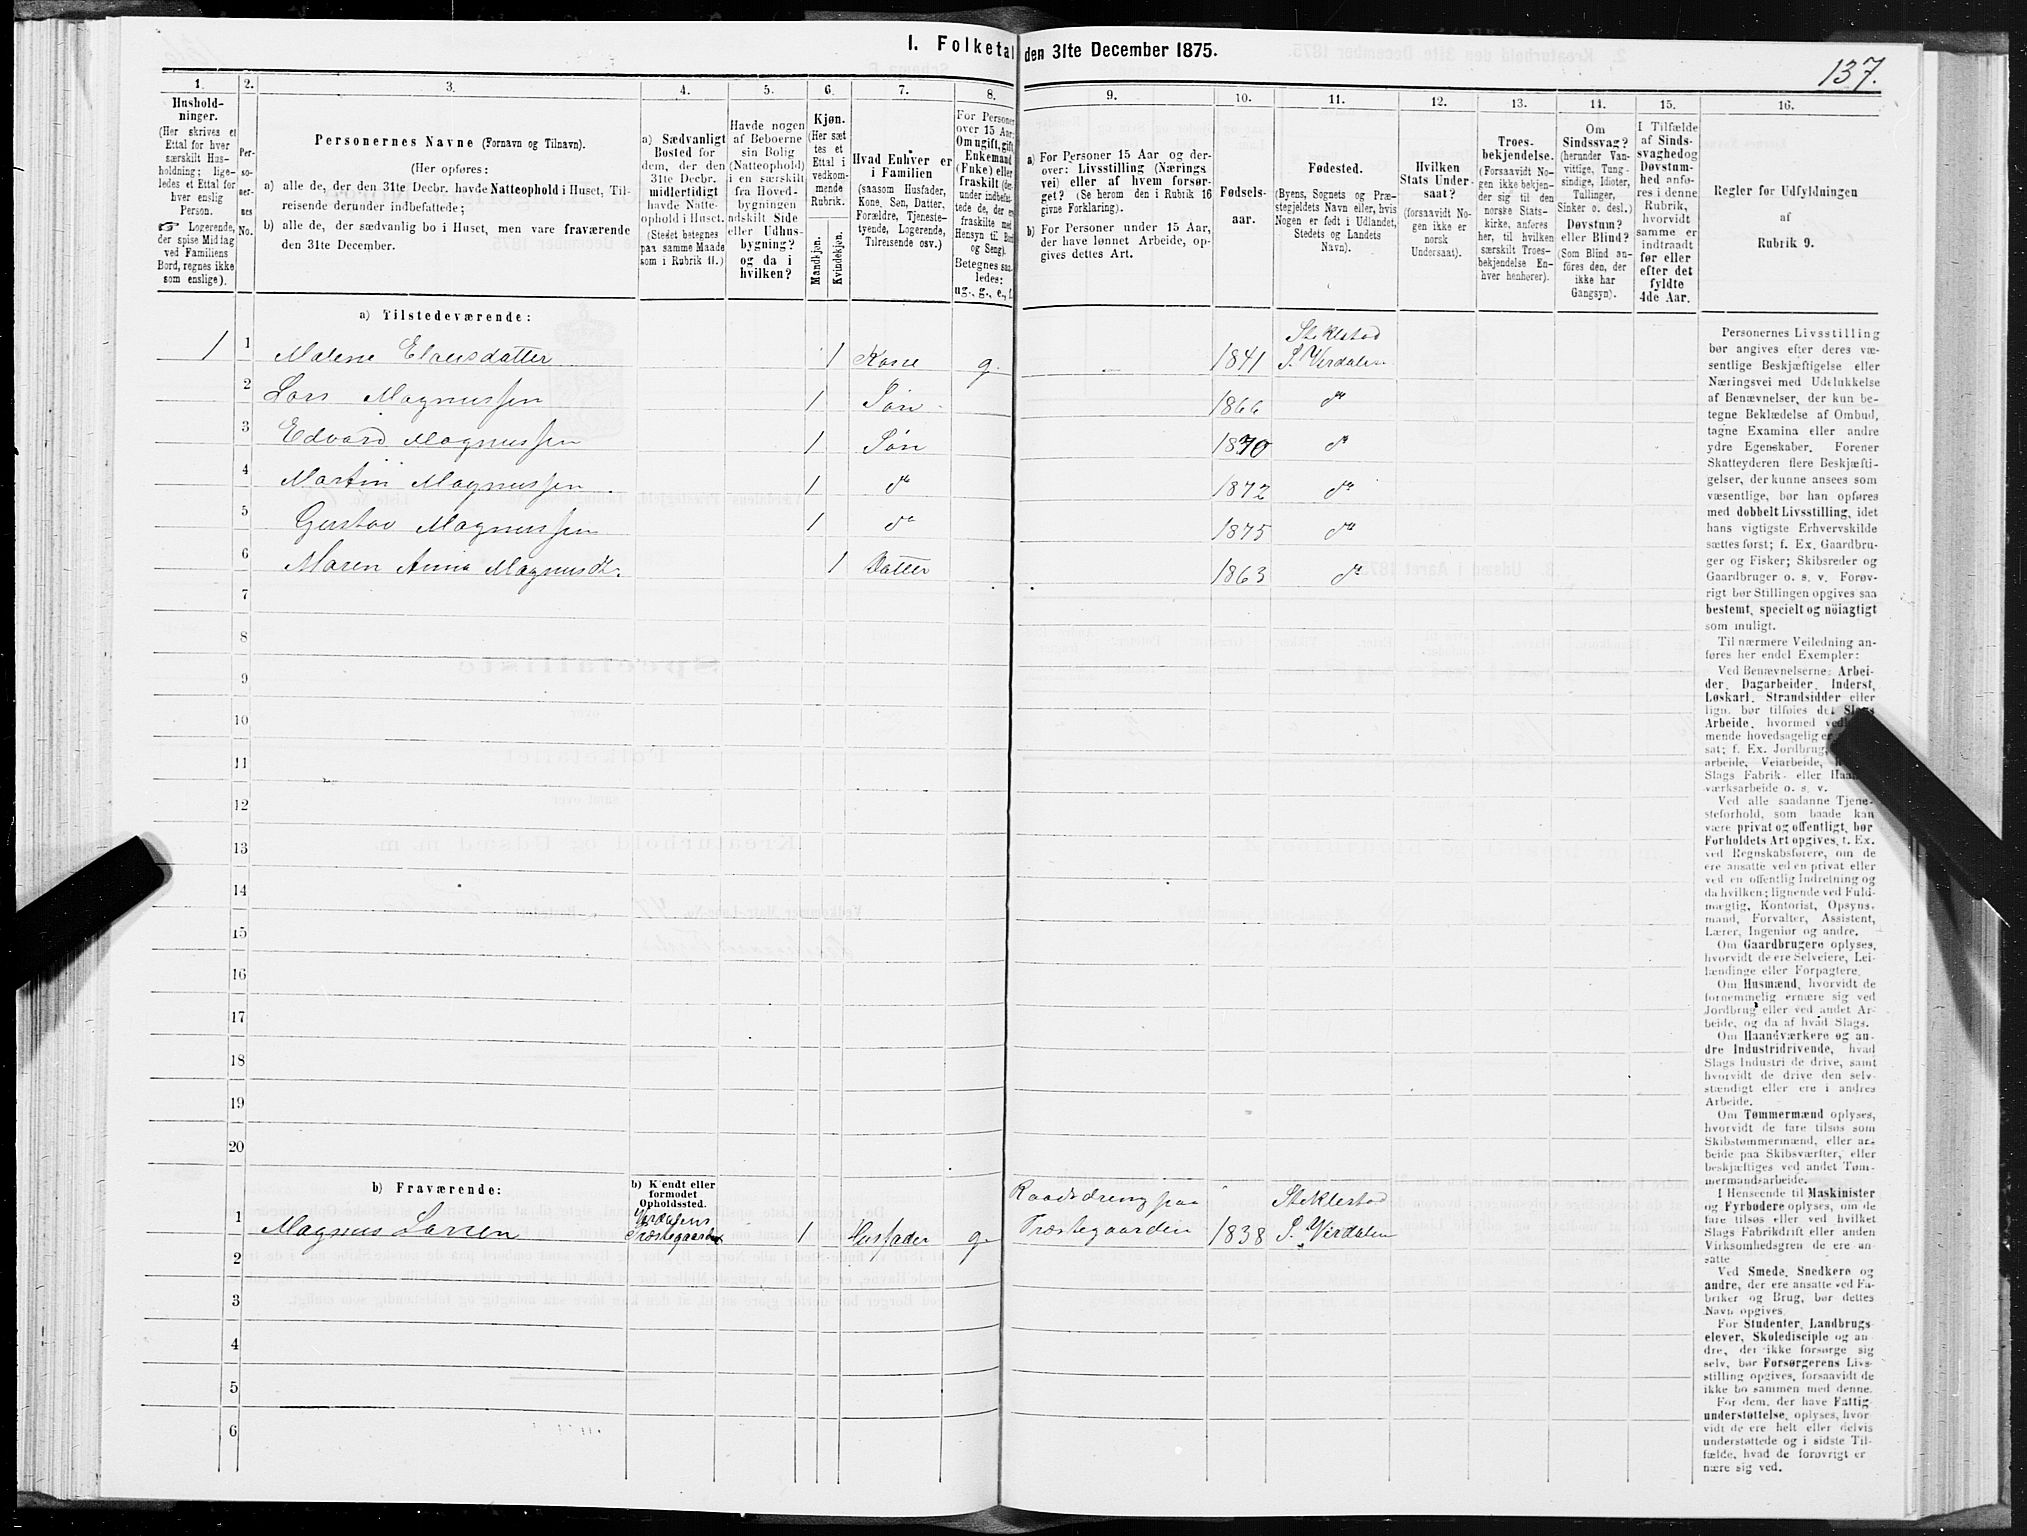 I. Folketal den 31te December 1875.
137.
1.
Husholdninger.
(Her skrives et Ettal for hver særskilt Husholdning; ligeledes et Ettal for hver enslig Person.
☞ Logerende, der spise Middag ved Familiens Bord, regnes ikke som enslige).
2.
Personernes No.
3.
Personernes Navne (Fornavn og Tilnavn).
(Her opføres:
a) alle de, der den 31te Decbr. havde Natteophold i Huset, Tilreisende derunder indbefattede;
b) alle de, der sædvanlig bo i Huset, men vare fraværende den 31te December.
4.
a) Sædvanligt Bosted for dem, der den 31te Decbr. midlertidigt havde Natteophold i Huset. (Stedet betegnes paa samme Maade som i Rubrik 11.)
5.
Havde nogen af Beboerne sin Bolig (Natteophold) i en særskilt fra Hovedbygningen adskilt Side eller Udhusbygning? og da i hvilken?
6.
Kjøn.
(Her sættes et Ettal i vedkommende Rubrik.
Mandkjøn.
Kvindekjøn.
7.
Hvad Enhver er i Familien
(saasom Husfader, Kone, Søn, Datter, Forældre, Tjenestetyende, Logerende, Tilreisende osv.)
8.
For Personer over 15 Aar: Om ugift, gift, Enkemand (Enke) eller fraskilt (derunder indbefattede de, der ere fraskilte med Hensyn til Bord og Seng). Betegnes saaledes: ug., g., e., f.
9.
a) For Personer 15 Aar og derover: Livsstilling (Næringsvei) eller af hvem forsørget? (Se herom den i Rubrik 16 givne Forklaring).
b) For Personer under 15 Aar, der have lønnet Arbeide, opgives dettes Art.
10.
Fødselsaar.
11.
Fødested.
(Byens, Sognets og Præstegjeldets Navn eller, hvis Nogen er født i Udlandet, Stedets og Landets Navn).
12.
Hvilken Stats Undersaat?
(forsaavidt Nogen ikke er norsk Undersaat).
13.
Troesbekjendelse.
(Forsaavidt Nogen ikke bekjender sig til den norske Statskirke, anføres her, til hvilken særskilt Troesbekjendelse Enhver henhører).
14.
Om Sindssvag?
(herunder Vanvittige, Tungsindige, Idioter, Tullinger, Sinker o. desl.)
Døvstum? eller Blind?
(Som Blind anføres den, der ikke har Gangsyn).
15.
I Tilfælde af Sindssvaghed og Døvstumhed anføres i denne Rubrik, hvorvidt samme er indtraadt før eller efter det fyldte 4de Aar.
16.
Regler for Udfyldningen af Rubrik 9.
a) Tilstedeværende:
1 1 Malene Elausdatter 1 Kone g. 1841 Stiklestad S. Værdalen
2 Lars Magnussen 1 Søn 1866 do
3 Edvard Magnussen 1 Søn 1870 do
4 Martin Magnussen 1 do 1872 do
5 Gustav Magnussen 1 do 1875 do
6 Maren Anna Magnusdtr. 1 Datter 1863 do
7
8
9
10
11
12
13
14
15
16
17
18
19
20
b) Fraværende:
b) Kjendt eller formodet Opholdssted.
1 Magnus Larsen Værdalens Præstegaarden 1 Husfader g. Raadsdreng paa Præstegaarden 1838 Stiklestad S. Værdalen
2
3
4
5
6
Personernes Livsstilling
bør angives efter deres væsentlige Beskjæftigelse eller
Næringsvei med Udelukkelse
af Benævnelser, der kun betegne Beklædelse af Ombud,
tagne Examina eller andre
ydre Egenskaber. Forener
Skatteyderen flere Beskjæftigelser, der kunne ansees som
væsentlige, bør han opføres
med dobbelt Livsstilling, idet
hans vigtigste Erhvervskilde
sættes først; f. Ex. Gaardbruger og Fisker; Skibsreder og
Gaardbruger o. s. v. Forøvrigt bør Stillingen opgives saa
bestemt, specielt og nöiagtigt
som muligt.
Til nærmere Veiledning anføres her endel Exempler:
Ved Benævnelserne: Arbeider, Dagarbeider, Inderst,
Løskarl, Strandsidder eller
lign. bør tilføies det Slags
Arbeide, hvormed
Ved alle saadanne Tjenesteforhold, som baade kan
være privat og offentligt, bør
Forholdets Art opgives, f. Ex.
ved Regnskabsførere, om de
ere ansatte ved en privat eller
ved en offentlig Indretning og
da hvilken; lignende ved Fuldmægtig, Kontorist, Opsynsmand, Forvalter, Assistent,
Lærer, Ingeniør og andre.
Om Gaardbrugere oplyses,
hvorvidt de ere Selveiere, Leilændinge eller Forpagtere.
Om Husmænd, hvorvidt de
fornemmelig ernære sig ved
Jordbrug eller ved andet Arbeide, og da af hvad Slags.
Om Haandværkere og andre Industridrivende, hvad
Slags Industri de drive, samt
hvorvidt de drive den selvstændigt eller ere i andres
Arbeide.
Om Tømmermænd oplyses,
hvorvidt de fare tilsøs som
Skibstømmermænd, eller arbeide paa Skibsværfter, eller
beskjæftiges ved andet Tømmermandsarbeide.
I Henseende til Maskinister
og Fyrbødere oplyses, om de
fare tilsøs eller ved hvilket
Slags Fabrikdrift eller anden
Virksomhedsgren de ere ansatte
Ved Smede, Snedkere og
andre, der ere ansatte ved Fabriker og Brug, bør dettes
Navn opgives.
For Studenter, Landbrugselever, Skoledisciple og andre, der ikke forsørge sig
selv, bør Forsørgerens Livsstilling opgives, forsaavidt de
ikke bo sammen med denne.
For dem, der have Fattigunderstøttelse, oplyses, hvorvidt de ere helt eller delvis
understøttede og i sidste Tilfælde, hvad de forøvrigt ernære sig ved.